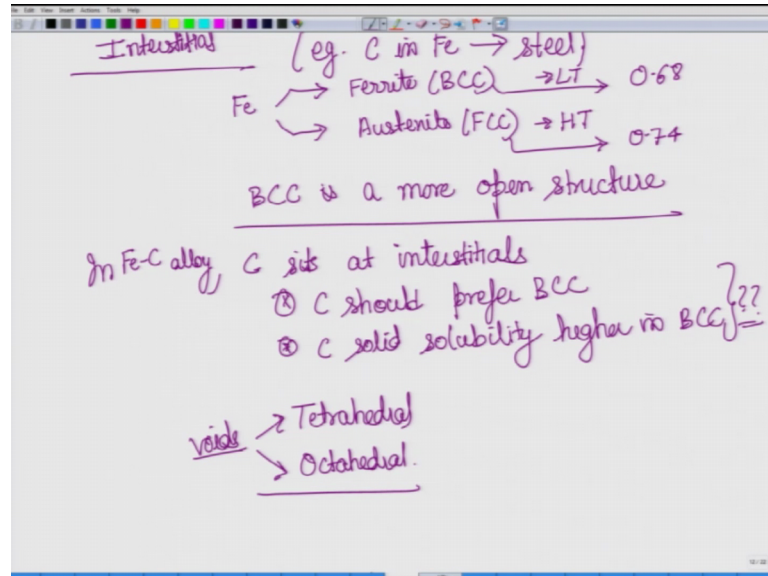 File Edit View Insert Actions Tools Help
Interstitial (eg. C in Fe → steel)
Fe → Ferrite (BCC) → LT → 0.68
→ Austenite (FCC) → HT → 0.74
BCC is a more open structure
In Fe-C alloy, C sits at interstitials
⊗ C should prefer BCC
⊗ C solid solubility higher in BCC } ??
voids → Tetrahedral
→ Octahedral.